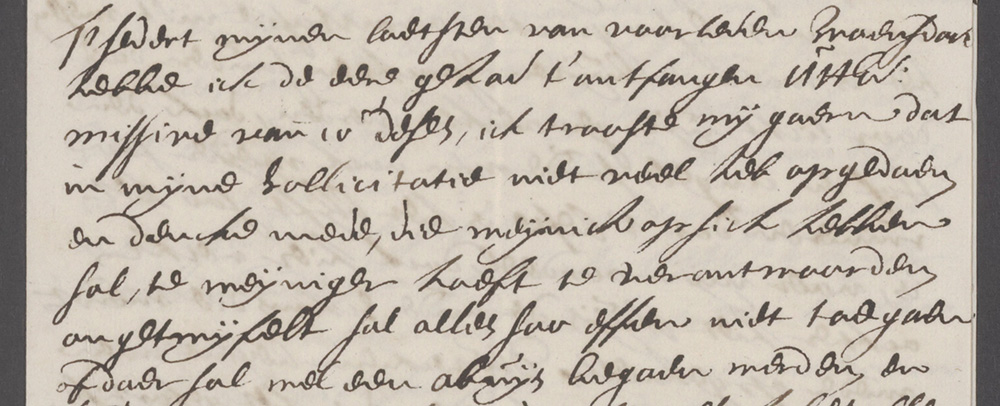 sedert mijnen laetsten van voorleden Woensdach
hebbe ick de eere gehad t'antfangen UHEd:
missive van 10 deses, ick trooste mij gaern dat
in mijne sollicitatie niet veel heb opgedaen
en dencke mede, die weijnich op sich hebben
sal, te weijniger hoeft te verantwoorden
ongetwijfelt sal alles soo effen niet toegaen
of daer sal wel een abuijs begaen werden, en